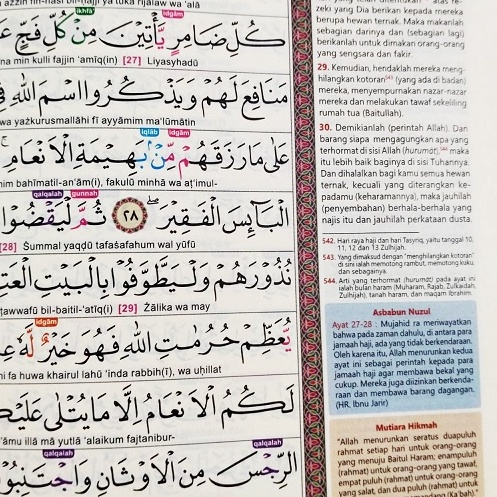 ikhfā'
idgām
كُلِّ ضَامِرٍ يَّأْتِيْنَ مِنْ كُلِّ فَجٍّ
na min kulli fajjin 'amīq(in) [27] Liyasyhadū
مَنَافِعَ لَهُمْ وَيَذْكُرُوا اسْمَ اللّٰهِ
wa yażkurusmallāhi fī ayyāmim ma'lūmātin
iqlāb
idgām
عَلٰى مَا رَزَقَهُمْ مِّنْۢ بَهِيْمَةِ الْاَنْعَامِ
him bahīmatil-an'ām(i), fakulū minhā wa aṭ'imul-
qalqalah
gunnah
الْبَآئِسَ الْفَقِيْرَ ۖ ﴿٢٨﴾ ثُمَّ لْيَقْضُوْا
[28] Ṡummal yaqḍū tafaśahum wal yūfū
نُذُوْرَهُمْ وَلْيَطَّوَّفُوْا بِالْبَيْتِ
ṭawwafū bil-baitil-'atīq(i) [29] Żālika wa may
idgām
يُّعَظِّمْ حُرُمٰتِ اللّٰهِ فَهُوَ خَيْرٌ لَّهٗ
fa huwa khairul lahū 'inda rabbih(ī), wa uḥillat
لَكُمُ الْاَنْعَامُ اِلَّا مَا يُتْلٰى
'āmu illā mā yutlā 'alaikum fajtanibur-
qalqalah
qalqalah
الرِّجْسَ مِنَ الْاَوْثَانِ وَاجْتَنِبُوْا
zeki yang Dia berikan kepada mereka
berupa hewan ternak. Maka makanlah
sebagian darinya dan (sebagian lagi)
berikanlah untuk dimakan orang-orang
yang sengsara dan fakir.
29. Kemudian, hendaklah mereka meng-
hilangkan kotoran⁵⁴³ (yang ada di badan)
mereka, menyempurnakan nazar-nazar
mereka dan melakukan tawaf sekeliling
rumah tua (Baitullah).
30. Demikianlah (perintah Allah). Dan
barang siapa mengagungkan apa yang
terhormat di sisi Allah (hurumāt),⁵⁴⁴ maka
itu lebih baik baginya di sisi Tuhannya.
Dan dihalalkan bagi kamu semua hewan
ternak, kecuali yang diterangkan ke-
padamu (keharamannya), maka jauhilah
(penyembahan) berhala-berhala yang
najis itu dan jauhilah perkataan dusta.
542. Hari raya haji dan hari Tasyriq, yaitu tanggal 10,
11, 12 dan 13 Zulhijah.
543. Yang dimaksud dengan "menghilangkan kotoran"
di sini ialah memotong rambut, memotong kuku,
dan sebagainya.
544. Arti yang terhormat (hurumāt) pada ayat ini
ialah bulan haram (Muharam, Rajab, Zulkaidah,
Zulhijah), tanah haram, dan maqam Ibrahim.
Asbabun Nuzul
Ayat 27-28 : Mujahid ra meriwayatkan
bahwa pada zaman dahulu, di antara para
jamaah haji, ada yang tidak berkendaraan.
Oleh karena itu, Allah menurunkan kedua
ayat ini sebagai perintah kepada para
jamaah haji agar membawa bekal yang
cukup. Mereka juga diizinkan berkenda-
raan dan membawa barang dagangan.
(HR. Ibnu Jarir)
Mutiara Hikmah
"Allah menurunkan seratus duapuluh
rahmat setiap hari untuk orang-orang
yang menuju Baitul Haram; enampuluh
(rahmat) untuk orang-orang yang tawaf,
empat puluh (rahmat) untuk orang-orang
yang salat, dan dua puluh (rahmat) untuk